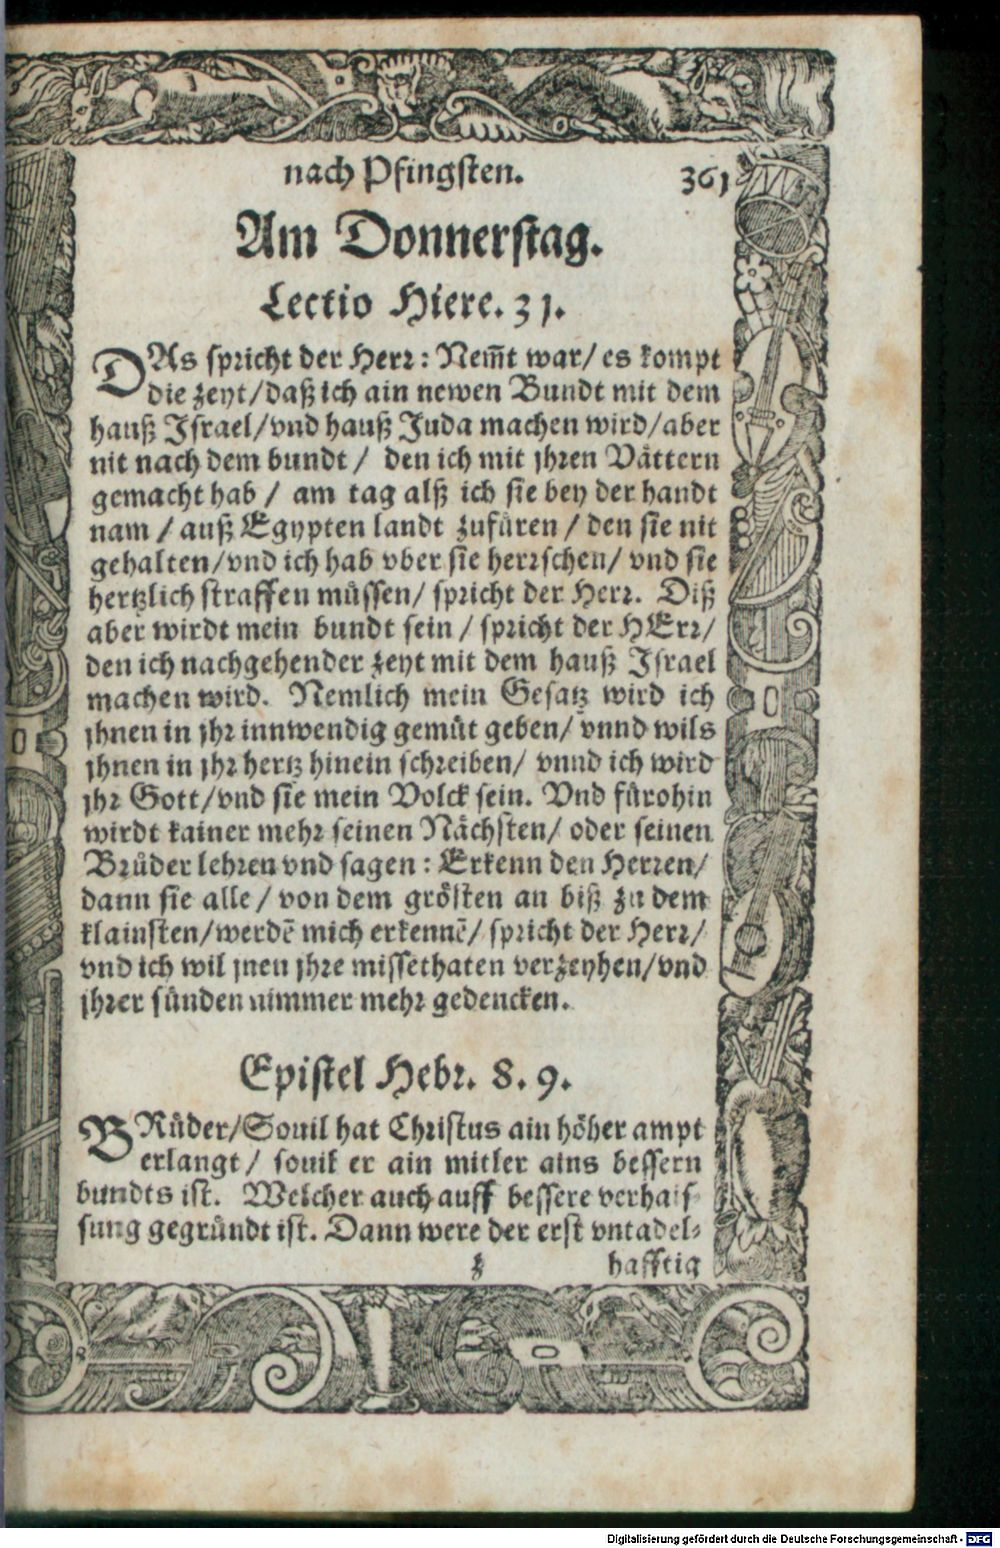 nach Pfingsten. 361
Am Donnerstag.
Lectio Hiere. 31.
DAs spricht der Herr: Nem̃t war/ es kompt
die zeyt/ daß ich ain newen Bundt mit dem
hauß Israel/ vnd hauß Juda machen wird/ aber
nit nach dem bundt / den ich mit jhren Våttern
gemacht hab / am tag alß ich sie bey der handt
nam / auß Egypten landt zufůren / den sie nit
gehalten/ vnd ich hab vber sie herrschen/ vnd sie
hertzlich straffen můssen/ spricht der Herr. Diß
aber wirdt mein bundt sein / spricht der HErr/
den ich nachgehender zeyt mit dem hauß Israel
machen wird. Nemlich mein Gesatz wird ich
jhnen in jhr innwendig gemůt geben/ vnnd wils
jhnen in jhr hertz hinein schreiben/ vnnd ich wird
jhr Gott/ vnd sie mein Volck sein. Vnd fůrohin
wirdt kainer mehr seinen Nåchsten/ oder seinen
Brůder lehren vnd sagen: Erkenn den Herren/
dann sie alle / von dem grôsten an biß zu dem
klainsten/ werdẽ mich erkennẽ/ spricht der Herr/
vnd ich wil jnen jhre missethaten verzeyhen/ vnd
jhrer sünden nimmer mehr gedencken.
Epistel Hebr. 8. 9.
BRůder/ Souil hat Christus ain hôher ampt
erlangt / souil er ain mitler ains bessern
bundts ist. Welcher auch auff bessere verhais-
sung gegründt ist. Dann were der erst vntadel-
z hafftig
Digitalisierung gefördert durch die Deutsche Forschungsgemeinschaft - DFG